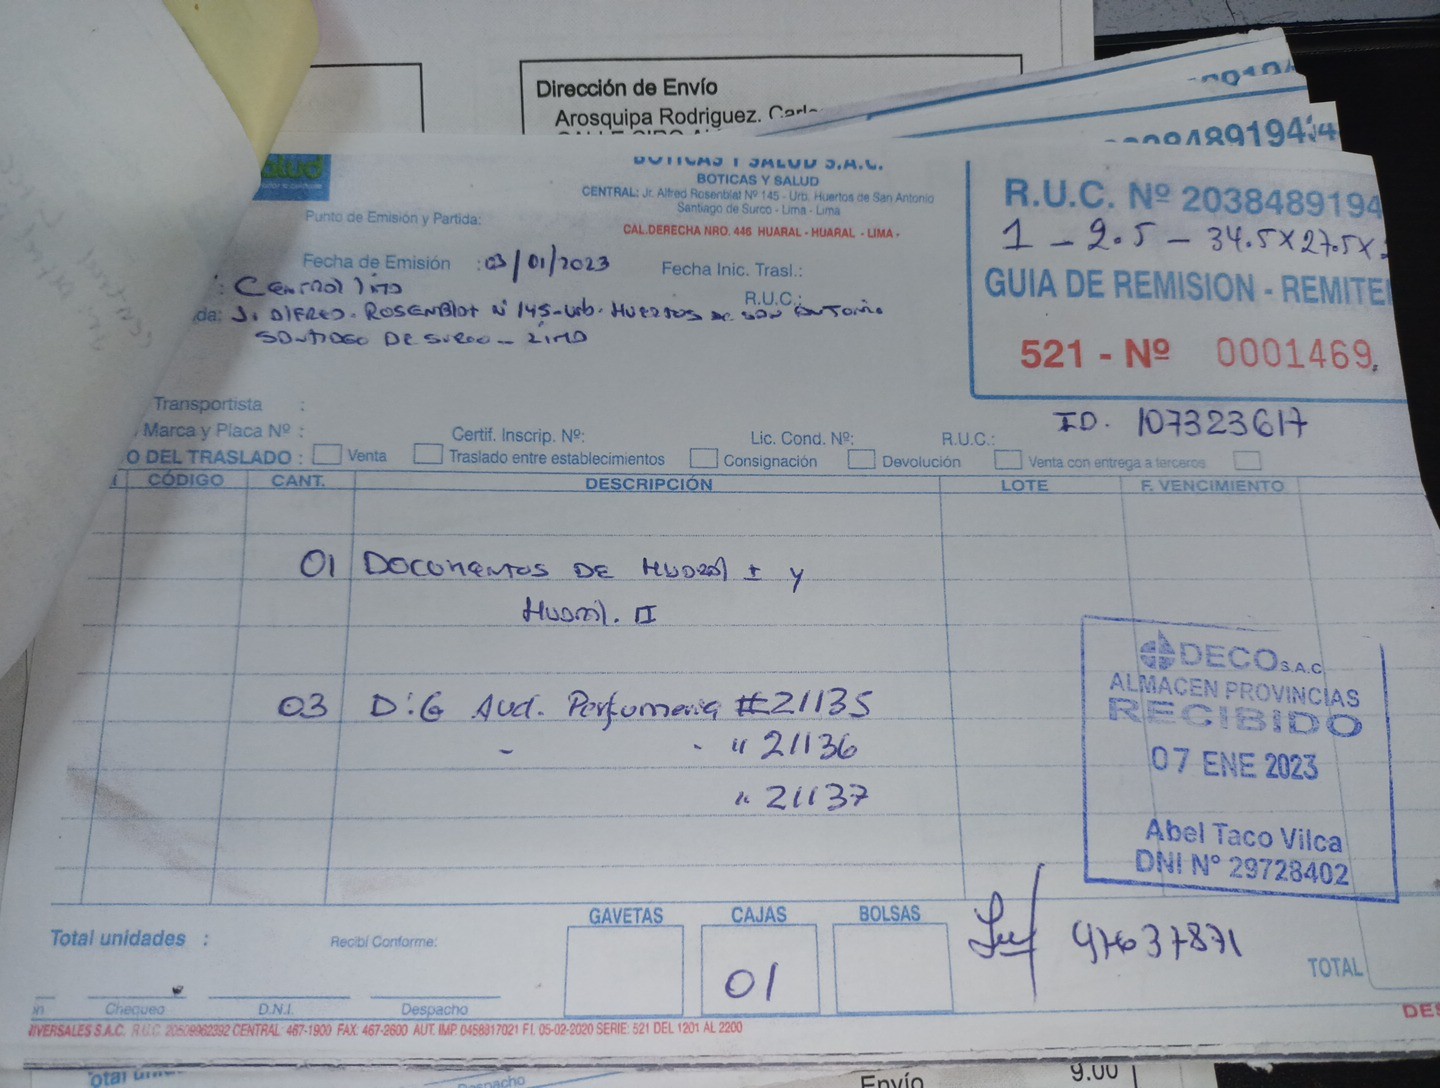 Dirección de Envío
Arosquipa Rodriguez. Carlo
BOTICAS Y SALUD S.A.C.
BOTICAS Y SALUD
CENTRAL: Jr. Alfred Rosenblat Nº 145 - Urb. Huertos de San Antonio
Santiago de Surco - Lima - Lima
CAL.DERECHA NRO. 446 HUARAL - HUARAL - LIMA -
R.U.C. Nº 2038489194
1 - 2.5 - 34.5X27.5X
GUIA DE REMISION - REMITE
521 - Nº 0001469
ID. 107323617
Punto de Emisión y Partida:
Fecha de Emisión : 03/01/2023 Fecha Inic. Trasl.:
: Central Lima R.U.C.:
da: J. Alfred. Rosenblat Nº 145-Urb. Huertos de San Antonio
Santiago De Surco - Lima
Transportista :
Marca y Placa Nº : Certif. Inscrip. Nº: Lic. Cond. Nº: R.U.C.:
O DEL TRASLADO : Venta Traslado entre establecimientos Consignación Devolución Venta con entrega a terceros
CÓDIGO CANT. DESCRIPCIÓN LOTE F. VENCIMIENTO
01 Documentos DE Huaral I y
Huaral. II
03 D:G Aud. Perfumeria #21135
- - " 21136
" 21137
DECO S.A.C
ALMACEN PROVINCIAS
RECIBIDO
07 ENE 2023
Abel Taco Vilca
DNI N° 29728402
47637871
GAVETAS CAJAS BOLSAS
01
Total unidades : Recibí Conforme:
TOTAL
Chequeo D.N.I. Despacho
IVERSALES S.A.C. R.U.C. 20509962392 CENTRAL: 467-1900 FAX: 467-2600 AUT. IMP. 0458817021 F.I. 05-02-2020 SERIE: 521 DEL 1201 AL 2200
DES
Despacho
Envío
9.00